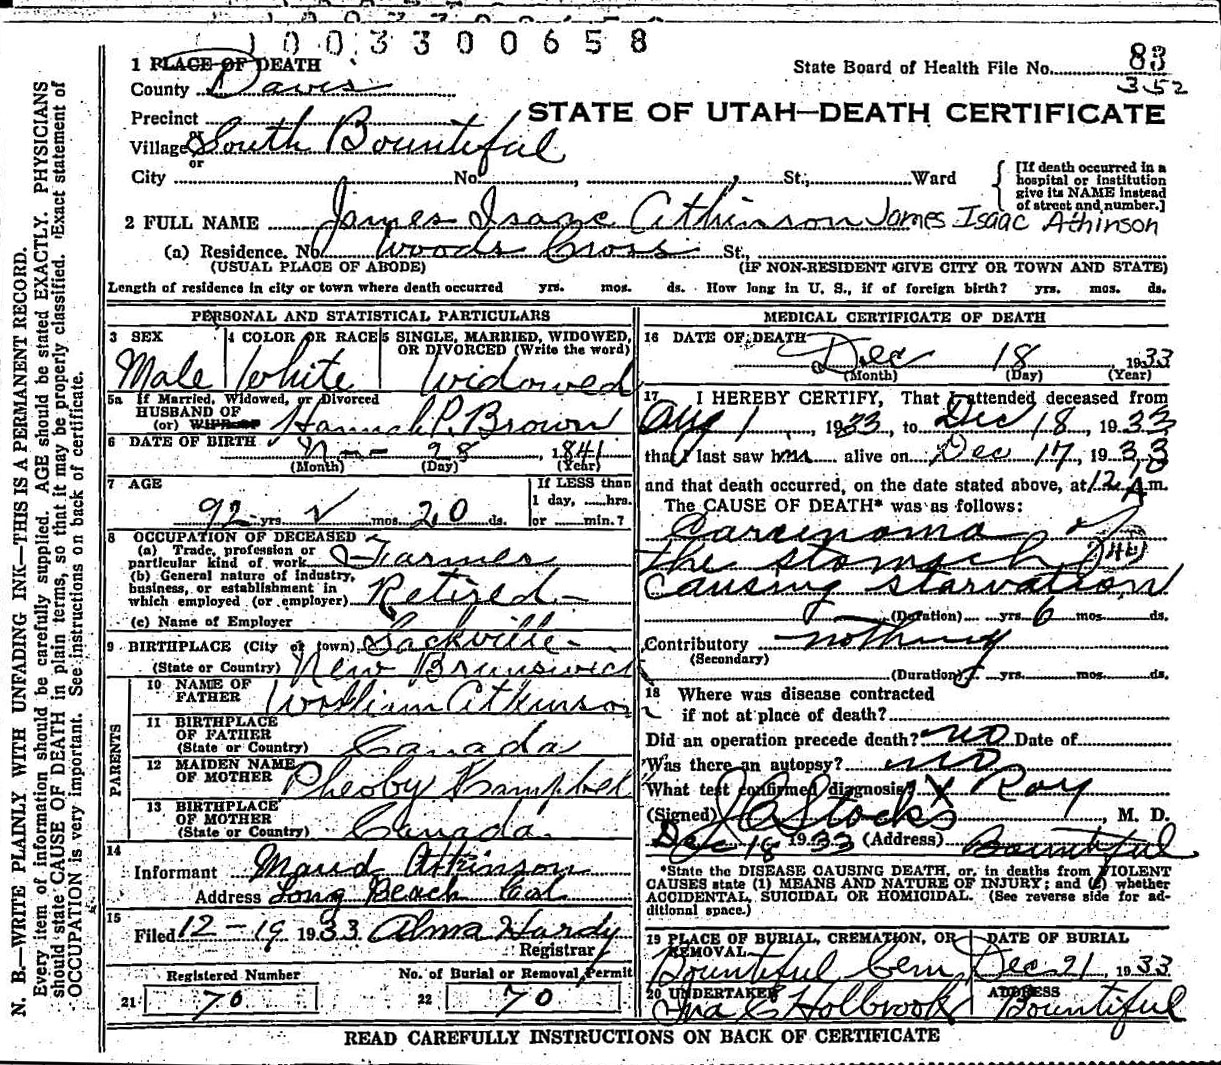 1003300658
1 PLACE OF DEATH
County Davis
State Board of Health File No. 83
352
Precinct
STATE OF UTAH—DEATH CERTIFICATE
Village South Bountiful
or
City No. , St., Ward
[If death occurred in a
hospital or institution
give its NAME instead
of street and number.]
2 FULL NAME James Isaac Atkinson James Isaac Athinson
(a) Residence. No. Woods Cross St.,
(USUAL PLACE OF ABODE) (IF NON-RESIDENT GIVE CITY OR TOWN AND STATE)
Length of residence in city or town where death occurred yrs. mos. ds. How long in U. S., if of foreign birth? yrs. mos. ds.
PERSONAL AND STATISTICAL PARTICULARS
3 SEX 4 COLOR OR RACE 5 SINGLE, MARRIED, WIDOWED,
OR DIVORCED (Write the word)
Male White Widowed
5a If Married, Widowed, or Divorced
HUSBAND OF
(or) WIFE OF Hannah P. Brown
6 DATE OF BIRTH 28, 1841
(Month) (Day) (Year)
7 AGE If LESS than
1 day, hrs.
92 yrs. mos. 20 ds. or min.?
8 OCCUPATION OF DECEASED
(a) Trade, profession or
particular kind of work Farmer
(b) General nature of industry,
business, or establishment in
which employed (or employer) Retired
(c) Name of Employer
9 BIRTHPLACE (City or town) Sackville
(State or Country) New Brunswick
PARENTS
10 NAME OF
FATHER William Atkinson
11 BIRTHPLACE
OF FATHER
(State or Country) Canada
12 MAIDEN NAME
OF MOTHER Pheoby Kampbel
13 BIRTHPLACE
OF MOTHER
(State or Country) Canada
14
Informant Maud Atkinson
Address Long Beach Cal
15
Filed 12-19 1933 Alma Hardy
Registrar
Registered Number No. of Burial or Removal Permit
21 70 22 70
MEDICAL CERTIFICATE OF DEATH
16 DATE OF DEATH
Dec 18 1933
(Month) (Day) (Year)
17 I HEREBY CERTIFY, That I attended deceased from
Aug 1, 1933, to Dec 18, 1933
that I last saw him alive on Dec 17, 1933
and that death occurred, on the date stated above, at 12 10 A m.
The CAUSE OF DEATH* was as follows:
Carcinoma of
the stomach
causing starvation
(Duration) yrs. 6 mos. ds.
Contributory nothing
(Secondary)
(Duration) yrs. mos. ds.
18 Where was disease contracted
if not at place of death?
Did an operation precede death? no Date of
Was there an autopsy? no
What test confirmed diagnosis? X Ray
(Signed) Stocks, M. D.
Dec 18 1933 (Address) Bountiful
*State the DISEASE CAUSING DEATH, or, in deaths from VIOLENT
CAUSES state (1) MEANS AND NATURE OF INJURY; and (2) whether
ACCIDENTAL, SUICIDAL OR HOMICIDAL. (See reverse side for ad-
ditional space.)
19 PLACE OF BURIAL, CREMATION, OR REMOVAL DATE OF BURIAL
Bountiful Cem Dec 21, 1933
20 UNDERTAKER ADDRESS
Ira C Holbrook Bountiful
READ CAREFULLY INSTRUCTIONS ON BACK OF CERTIFICATE
N. B.—WRITE PLAINLY WITH UNFADING INK—THIS IS A PERMANENT RECORD.
Every item of information should be carefully supplied. AGE should be stated EXACTLY. PHYSICIANS
should state CAUSE OF DEATH in plain terms, so that it may be properly classified. Exact statement of
OCCUPATION is very important. See instructions on back of certificate.